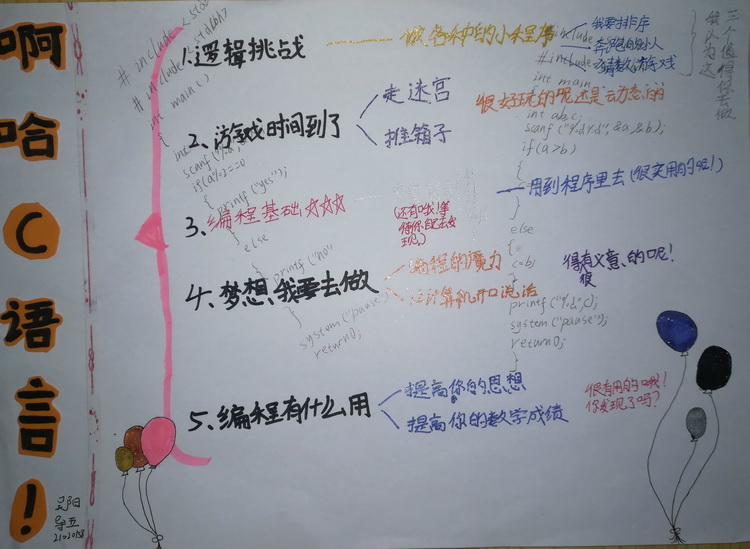 啊哈C语言！
1.逻辑挑战
做各种的小程序
我要排序
奔跑的小人
猜数游戏
三个值得你去做
我认为这
2、游戏时间到了
走迷宫
推箱子
很好玩的呢还是动态的
3、编程基础☆☆☆
(还有哦!等
待你自己去发
现。)
用到程序里去(很实用的呢!)
4、梦想,我要去做
编程的魔力
让计算机开口说话
很有义意、的呢!
5、编程有什么用
提高你的思想
提高你的数学成绩
很有用的哦!
你发现了吗?
# include <
# include
int main()
{
int
scanf("
if(a%2==0
{
printf("yes");
}
else
{
printf("no"
}
system("pause
return 0;
# include
int main
int a,b,c;
scanf("%d%d",&a,&b);
if(a>b)
{
}
else
{
c=b;
printf("%d",c);
system("pause");
return 0;
}